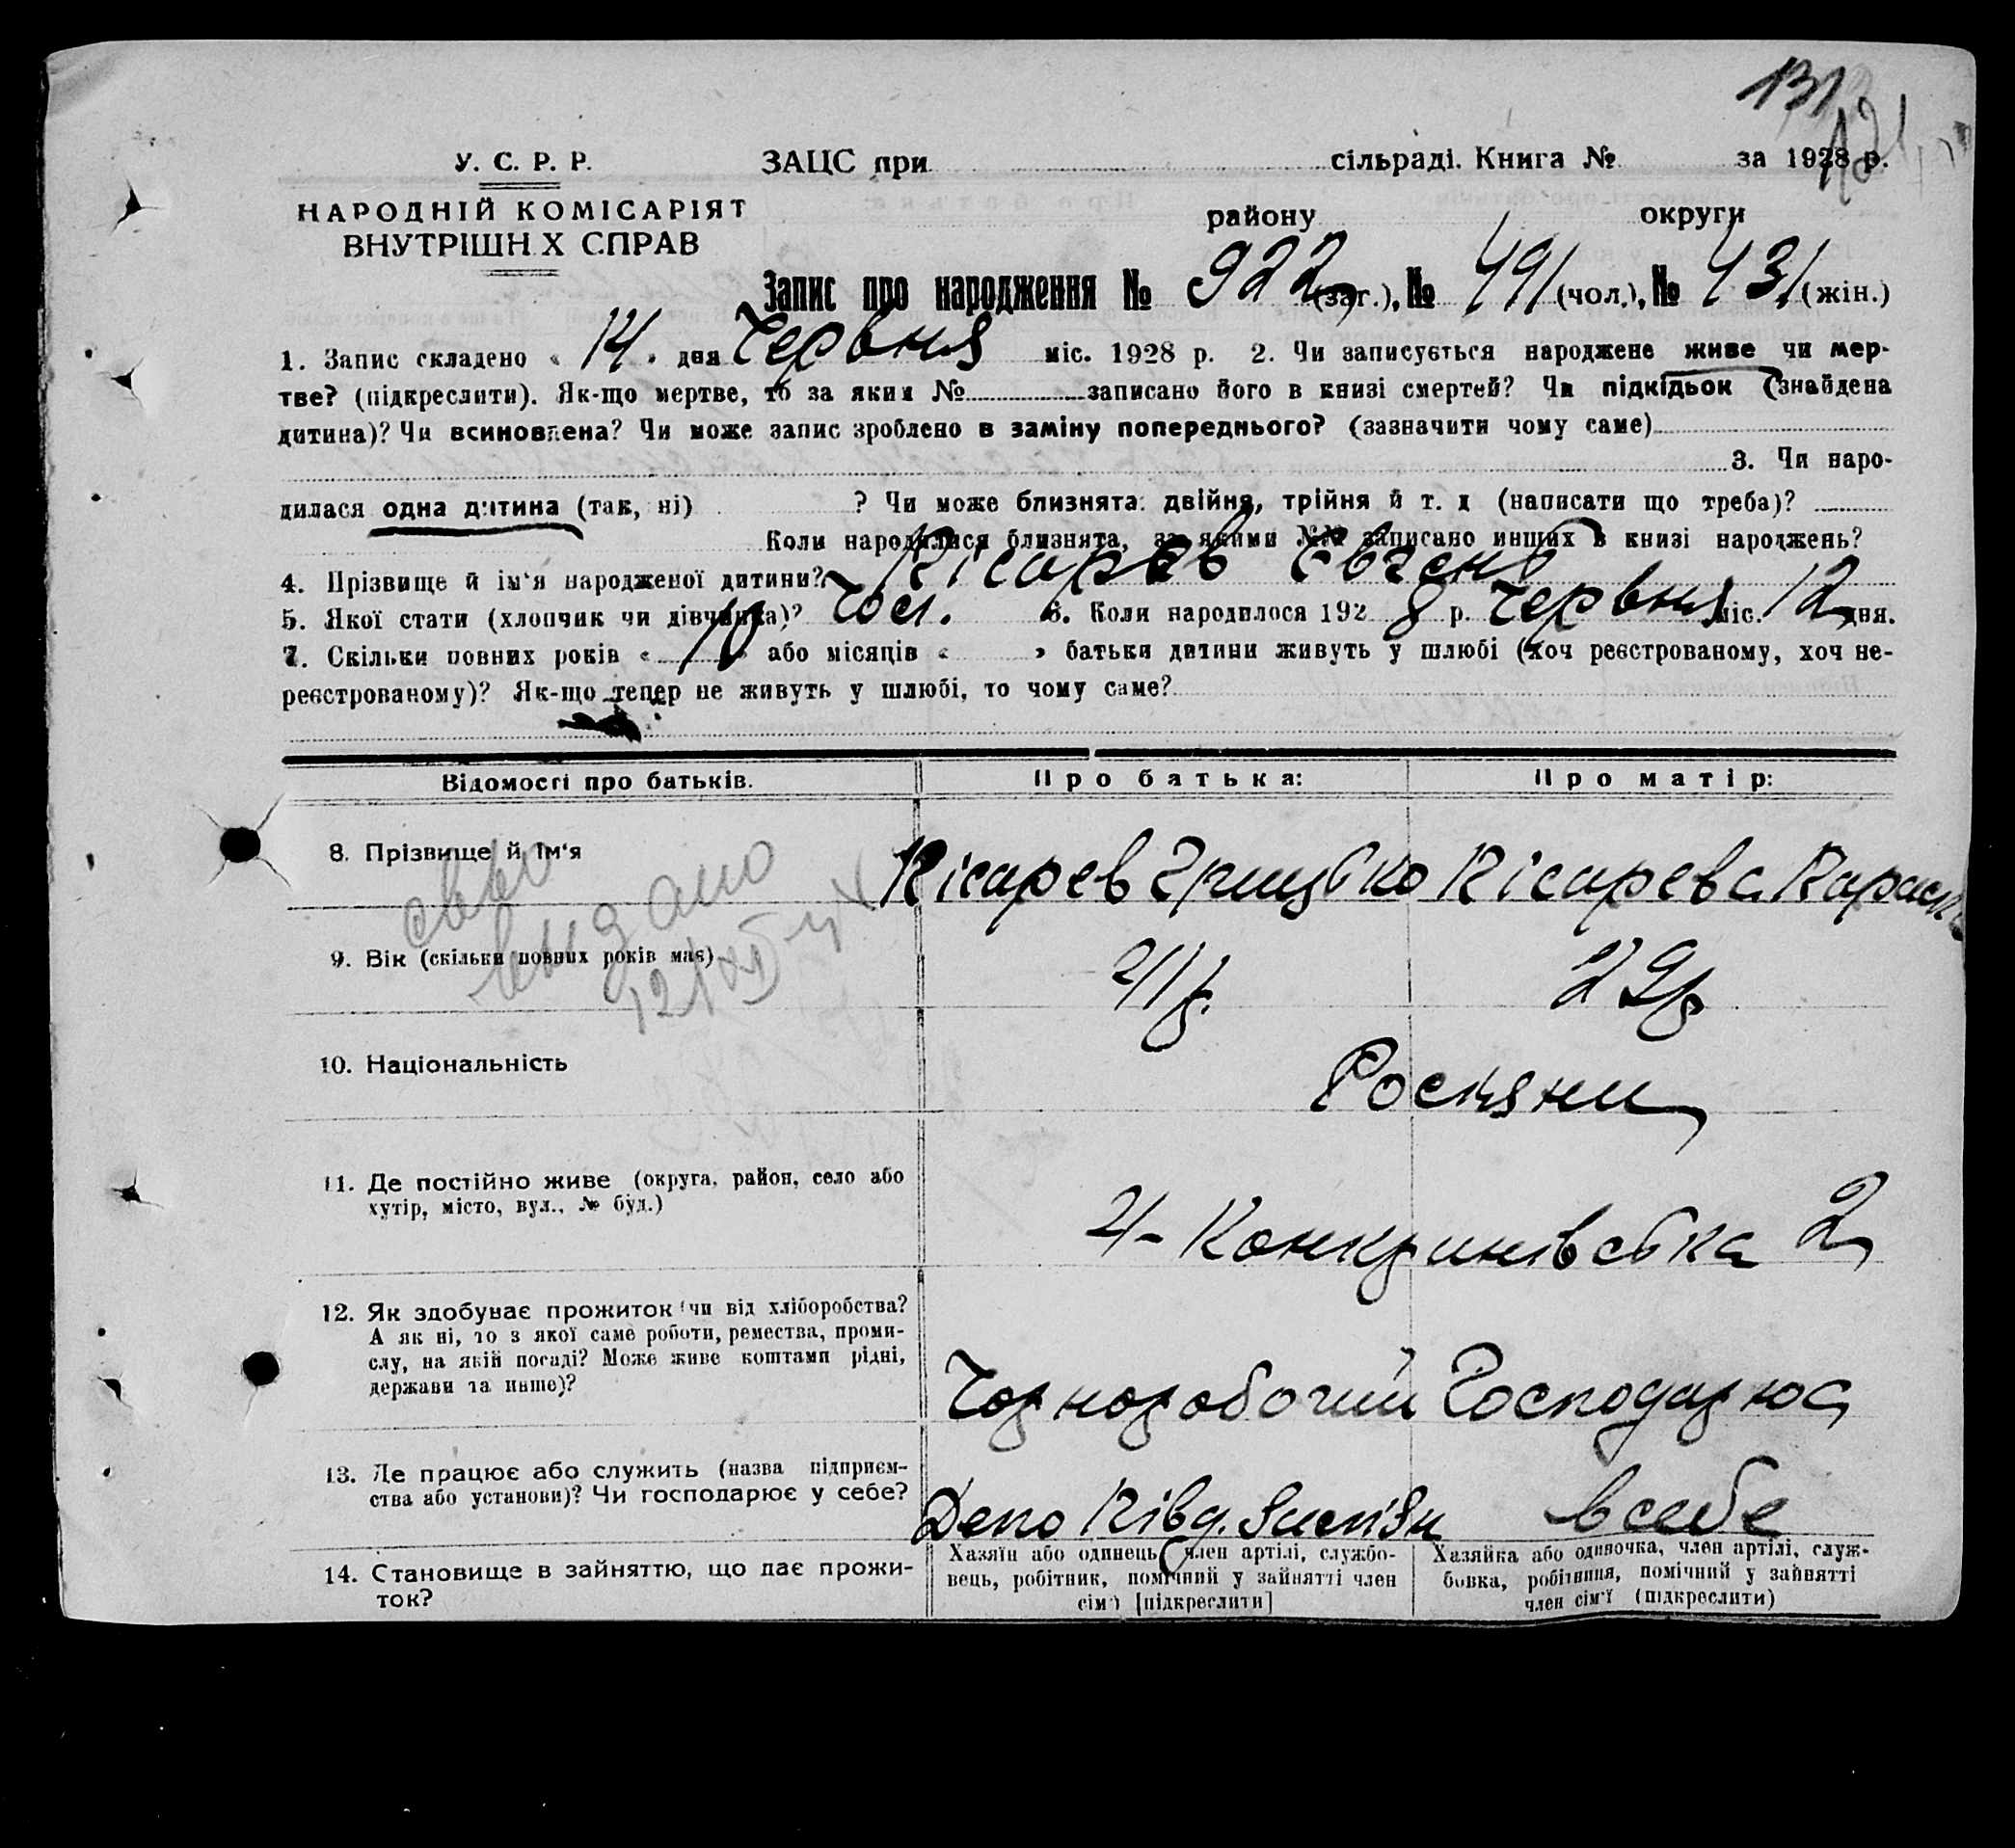 131
У. С. Р. Р. ЗАЦС при сільраді. Книга № за 1928 р.
НАРОДНІЙ КОМІСАРІЯТ району округи
ВНУТРІШН Х СПРАВ
Запис про народження № 922 (заг.), № 491 (чол.), № 431 (жін.)
1. Запис складено « 14 » дня Червня міс. 1928 р. 2. Чи записується народжене живе чи мер-
тве? (підкреслити). Як-що мертве, то за яким № записано його в книзі смертей? Чи підкідьок (знайдена
дитина)? Чи всиновлена? Чи може запис зроблено в заміну попереднього? (зазначити чому саме)
3. Чи наро-
дилася одна дитина (так, ні) ? Чи може близнята: двійня, трійня й т. д (написати що треба)?
Коли народилися близнята, за якими №№ записано инших в книзі народжень?
4. Прізвище й ім'я народженої дитини? Кісарев Євген
5. Якої стати (хлопчик чи дівчинка)? Чол. 6. Коли народилося 1928 р. Червня міс. 12 дня.
7. Скільки повних років « 10 » або місяців « » батьки дитини живуть у шлюбі (хоч реєстрованому, хоч не-
реєстрованому)? Як-що тепер не живуть у шлюбі, то чому саме?
Відомості про батьків. Про батька: Про матір:
8. Прізвище й ім'я Кісарев Грицько Кісарева Параск
видано
9. Вік (скільки повних років має) 29р
10. Національність Росіяни
11. Де постійно живе (округа, район, село або
хутір, місто, вул., № буд.)
2
12. Як здобуває прожиток (чи від хліборобства?
А як ні, то з якої саме роботи, ремества, проми-
слу, на якій посаді? Може живе коштами рідні,
держави та инше)?
Чорноробочий Господарює
13. Де працює або служить (назва підприєм-
ства або установи)? Чи господарює у себе?
Депо Півд. Залізн в себе
14. Становище в зайняттю, що дає прожи-
ток?
Хазяїн або одинець, член артілі, службо-
вець, робітник, помічний у зайнятті член
сім'ї [підкреслити]
Хазяйка або одиночка, член артілі, служ-
бовка, робітниця, помічний у зайнятті
член сім'ї (підкреслити)